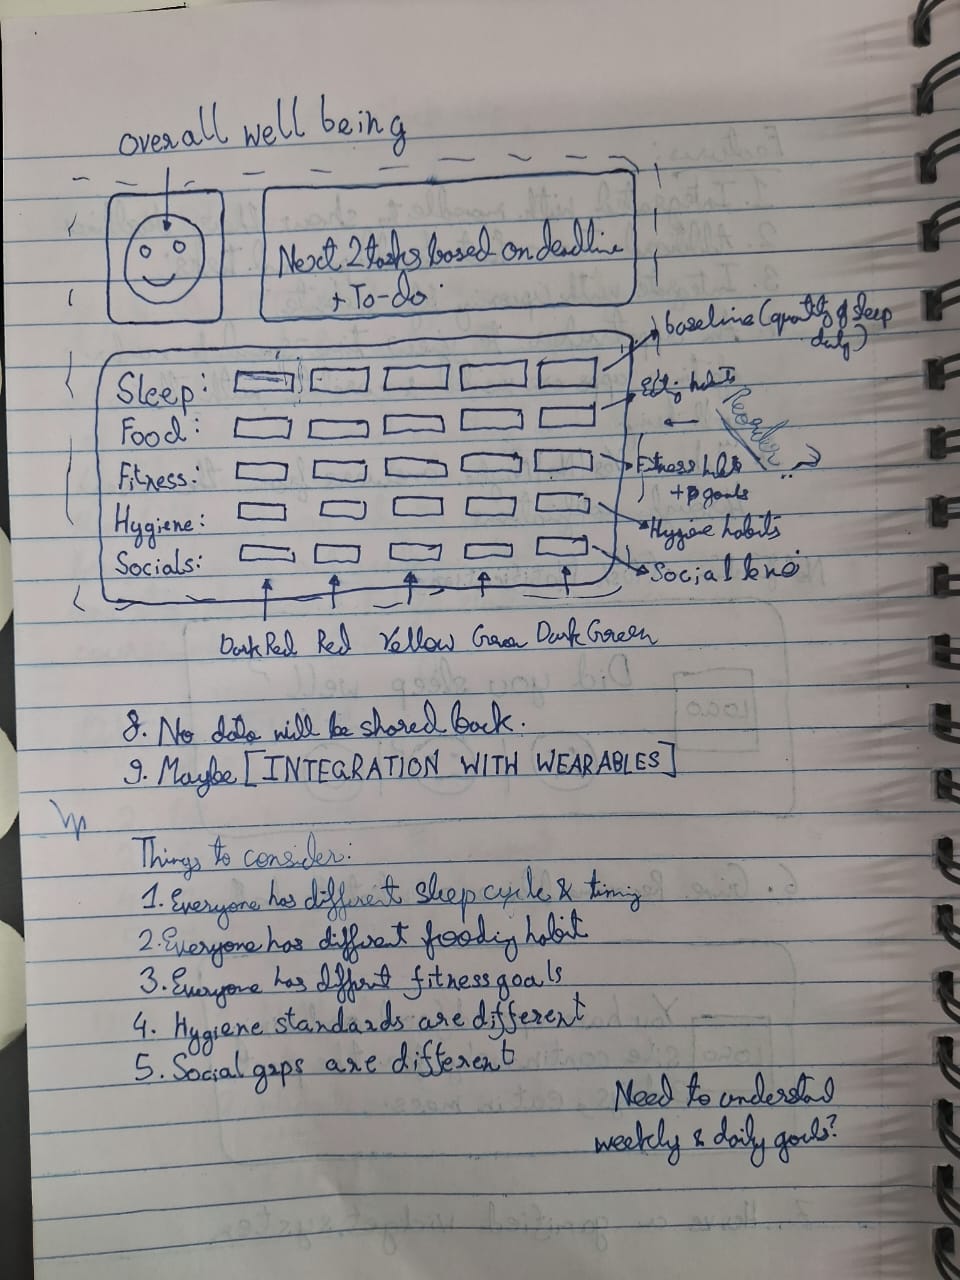 overall well being
Next 2 tasks based on deadline
+ To-do.
baseline (quantity of sleep
daily)
Sleep:
Food:
Fitness:
Fitness
+ goals
Hygiene:
Hygiene habits
Socials:
Social
Dark Red Red Yellow Green Dark Green
8. No data will be shared back.
9. Maybe [INTEGRATION WITH WEARABLES]
Things to consider:
1. Everyone has different sleep cycle & timing
2. Everyone has diffrent fooding habit
3. Everyone has diffrent fitness goals
4. Hygiene standards are different
5. Social gaps are different
Need to understad
weekly & daily goals?